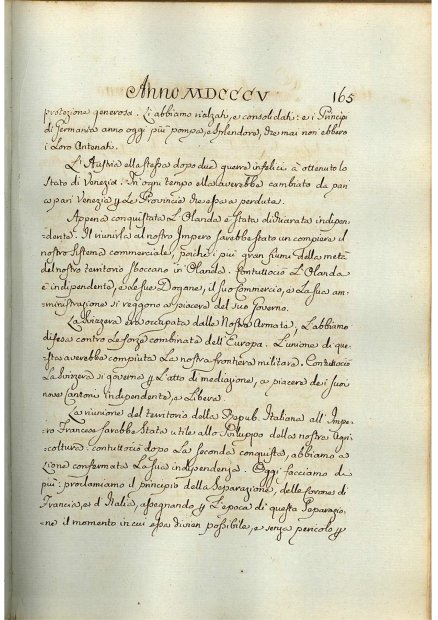 Anno MDCCCV 165
protezione generosa. Li abbiamo rialzati, e consolidati: e i Principi
di Germania anno oggi più pompa, e splendore, che mai non ebbero
i Loro Antenati.
L'Austria ella stessa dopo due guerre infelici à ottenuto lo
Stato di Venezia. In ogni tempo ella averebbe cambiato da pari
a pari Venezia p Le Provincie che essa à perdute.
Appena conquistata L'Olanda è stata dichiarata indipen-
dente. Il riunirla al nostro Impero sarebbe stato un compiere il
nostro Sistema commerciale, poichè i più gran fiumi della metà
del nostro territorio sboccano in Olanda. Contuttociò L'Olanda
è indipendente, e Le sue Dogane, il suo Commercio, e La sua am-
ministrazione si reggono a piacere del suo Governo.
La Svizzera era occupata dalle Nostre Armate, L'abbiamo
difesa contro Le forze combinate dell'Europa. L'unione di que-
sta averebbe compiuta La nostra frontiera militare. Contuttociò
La Svizzera si governa p L'atto di mediazione, a piacere de i suoi
nove Cantoni indipendente, e Libera.
La riunione del territorio della Repub. Italiana all'Impe-
ro Francese sarebbe Stata utile allo Sviluppo della nostra Agri-
coltura. contuttociò dopo La seconda conquista, abbiamo a
Lione confermata La sua indipendenza. Oggi facciamo di
più: proclamiamo il principio della Separazione, delle Corone di
Francia, e d'Italia, assegnando p L'epoca di questa Separazio-
ne il momento in cui essa divien possibile, e senza pericolo p